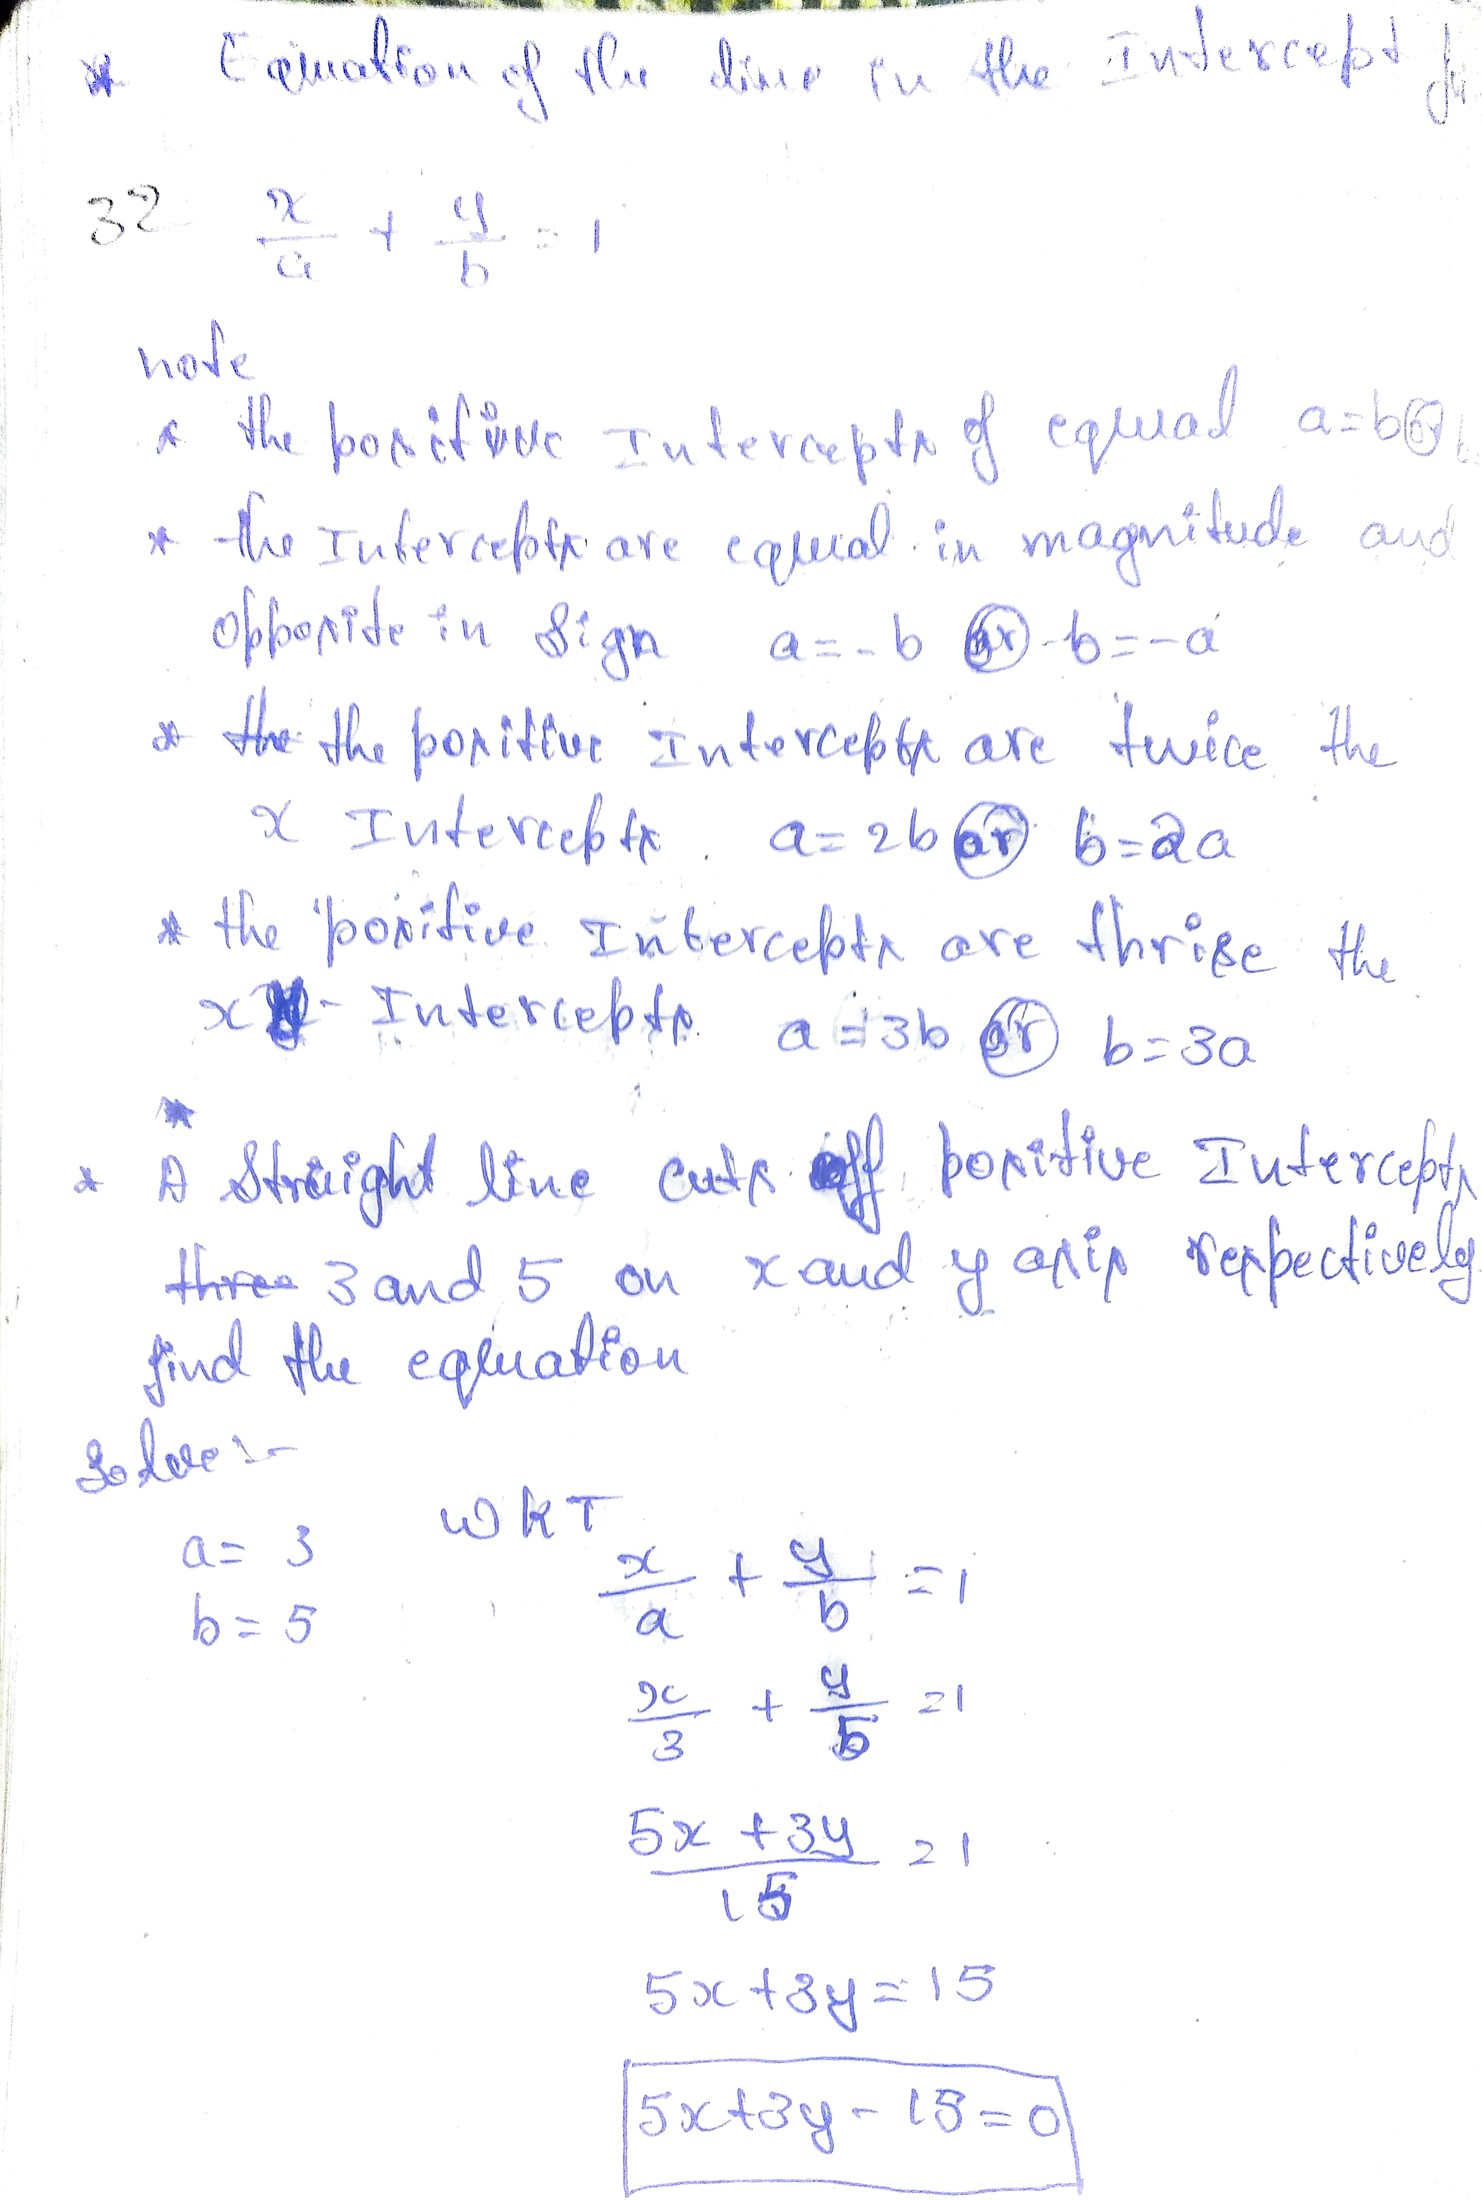 * Equation of the line in the Intercept
32 x/a + y/b = 1
note
* the positive Intercepts of equal a=b or
* the Intercepts are equal in magnitude and
opposite in sign a=-b or b=-a
* the the positive Intercepts are twice the
x Intercepts. a=2b or b=2a
* the positive Intercepts are thrise the
x - Intercepts. a=3b or b=3a
*
* A Straight line cuts off positive Intercepts
three 3 and 5 on x and y axis respectively
find the equation
Solve:-
a= 3 WKT
x/a + y/b =1
b= 5
x/3 + y/5 =1
5x+3y/15 =1
5x+3y=15
5x+3y-15=0